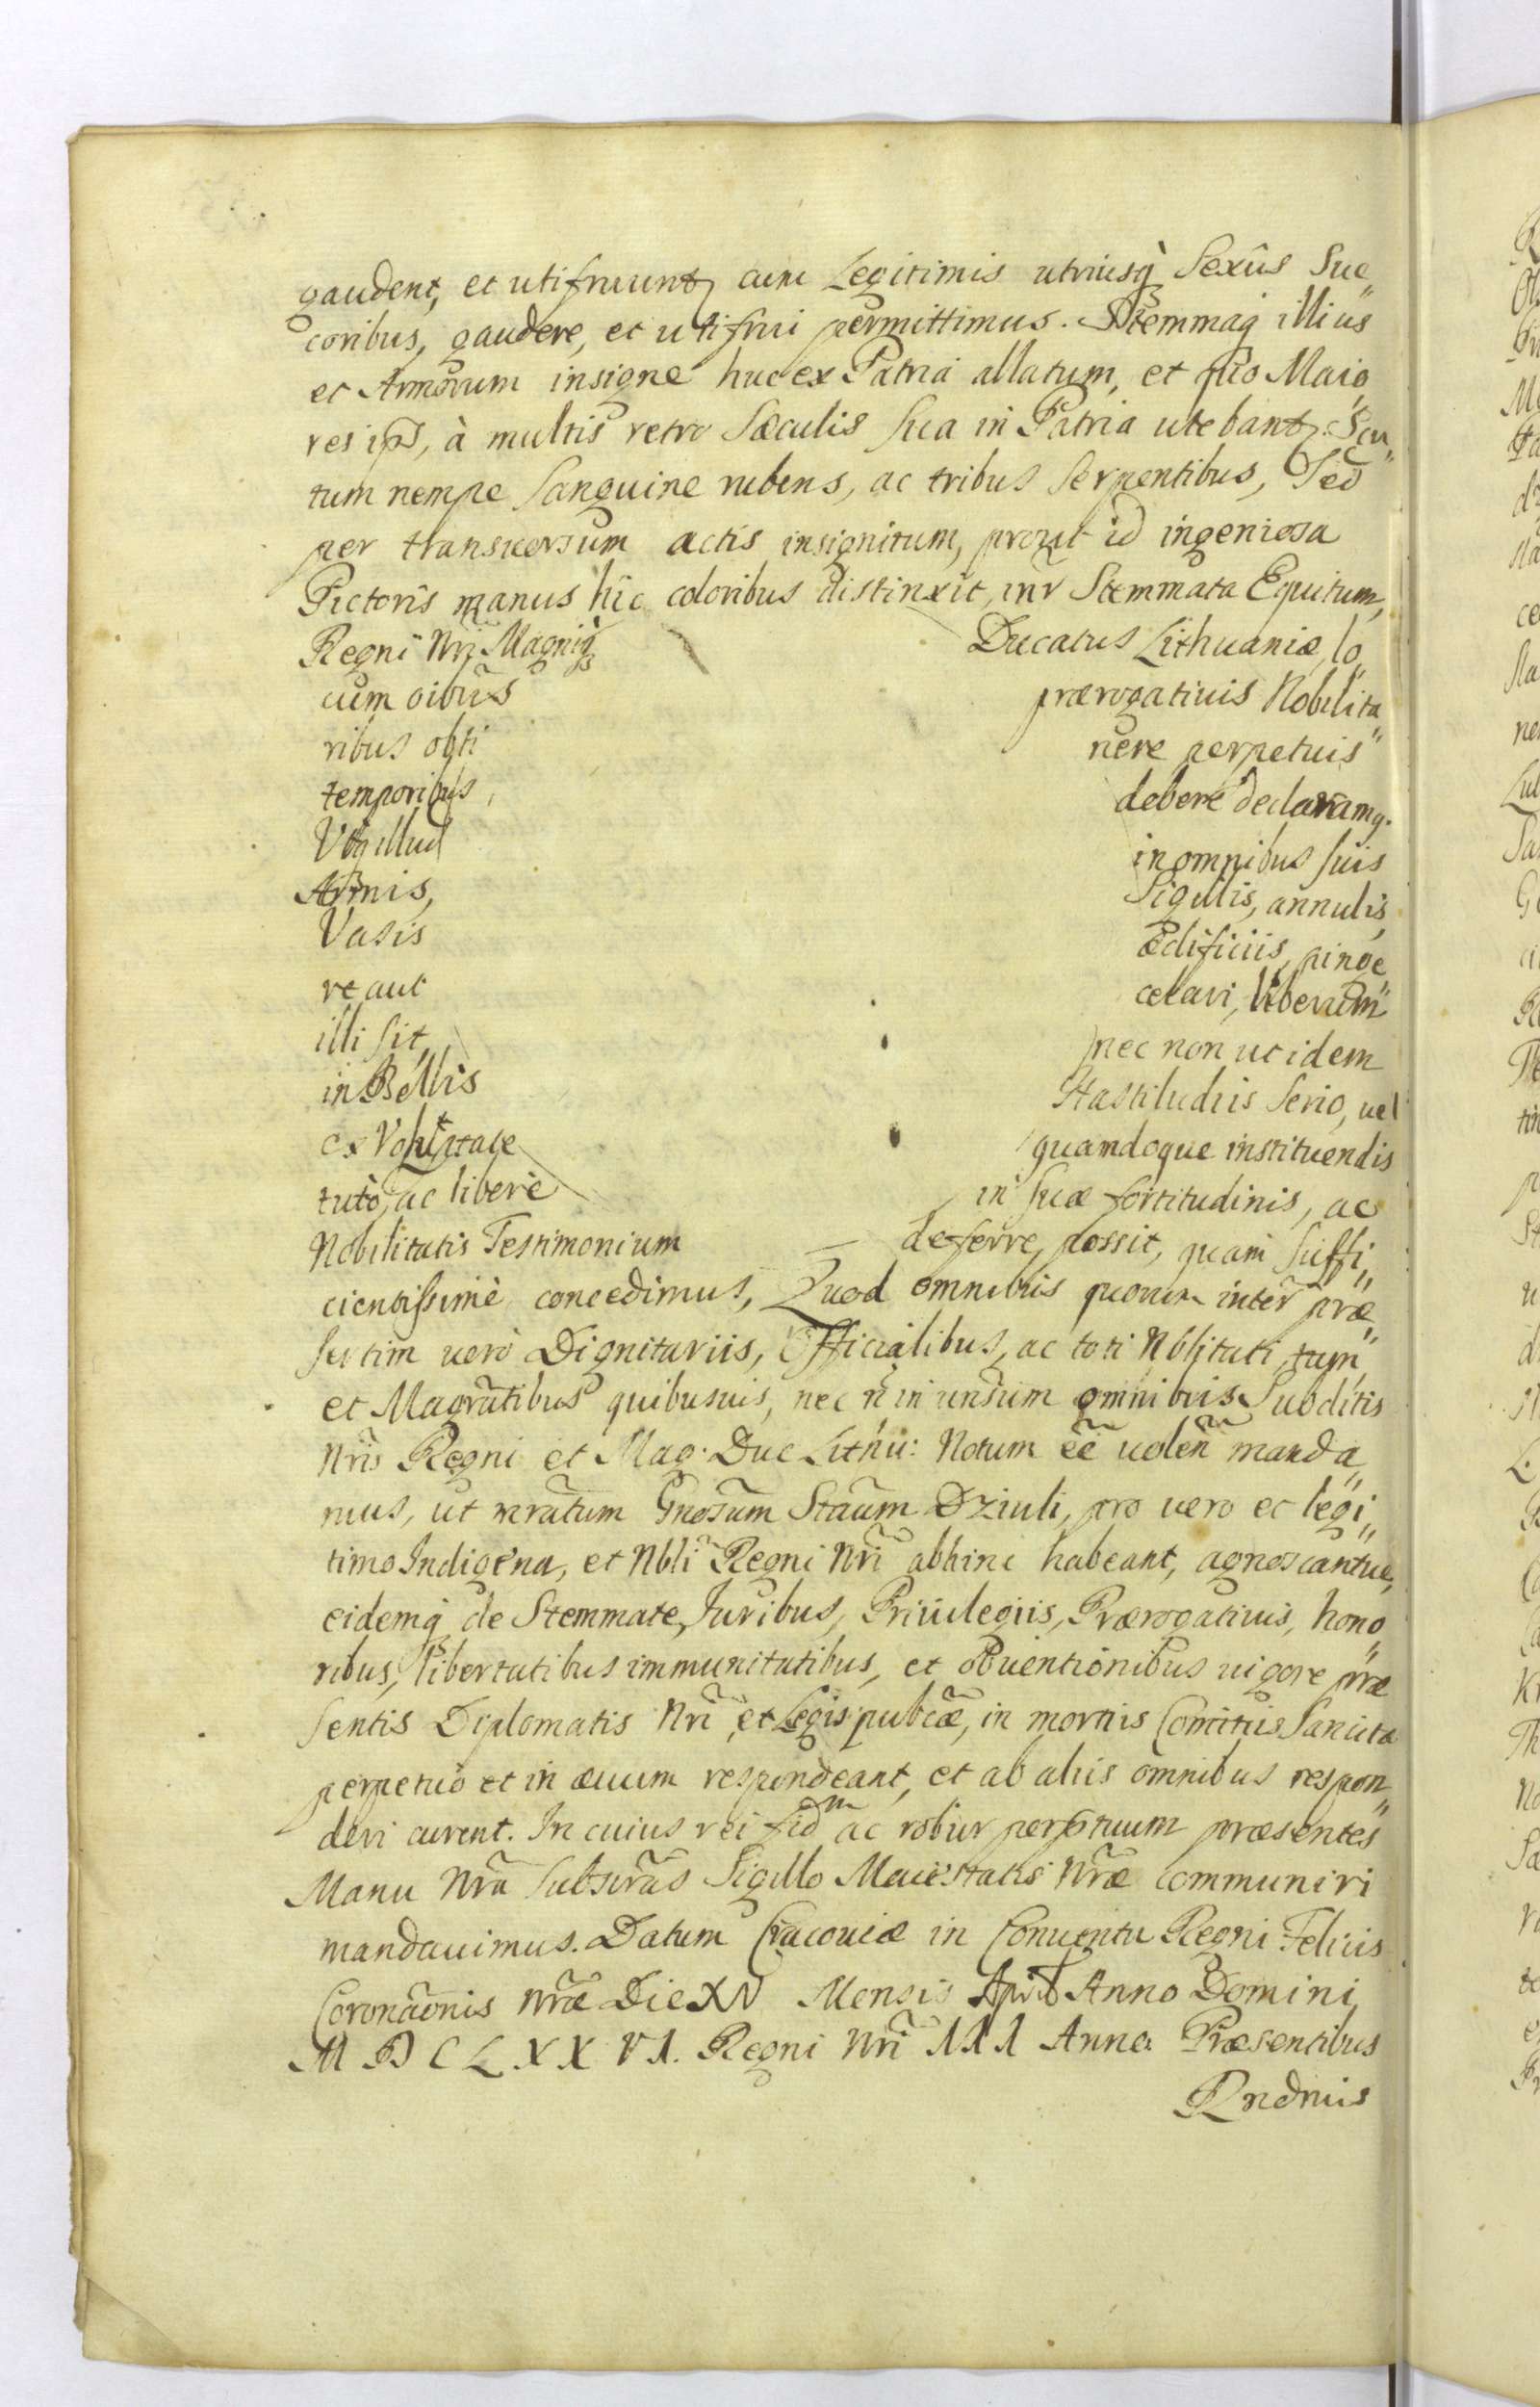 gaudent, et utifruunt cum Legitimis utriusq Sexûs Suc„
coribus, gaudere, et utifrui permittimus. Stemmaq illius
et Armorum insigne huc ex Patria allatum, et quo Maio„
res ips, à multis retro Sæculis Sua in Patria utebant. Scu„
tum nempe Sanguine rubens, ac tribus Serpentibus, Sed
per transversum actis insignitum, prout id ingeniosa
Pictoris manus hic coloribus distinxit, inr Stemmata Equitum,
Regni Nri Magniq Ducatus Lithuaniæ, lo„
cum oibus prærogativis Nobilita„
ribus obti nere perpetuis
temporibus, debere declaramq.
Utq illud in omnibus suis
Armis, Sigillis, annulis,
Vasis Ædificiis, pinge„
re aut celari, liberum
illi sit, nec non ut idem
in Bellis Hastiludiis Serio, vel
ex Voluptate quandoque instituendis
tutò, ac liberè in suæ fortitudinis, ac
Nobilitatis Testimonium deferre possit, quam Suffi„
cientissimè concedimus, Quod omnibus quorum inter præ„
sertim verò Dignitariis, Officialibus, ac toti Nblitati, tum
et Magratibus quibusvis, nec n in unsum omnibus Subditis
Nris Regni et Mag. Duc Lithu: Notum ee volen manda„
mus, ut mratum Gnosum Staum Dziuli, pro vero et legi„
timo Indigena, et Nbli Regni Nri abhinc habeant, agnoscantue,
eidemq de Stemmate, Juribus, Privilegiis, Prærogativis, hono„
ribus, libertatibus immunitatibus, et obventionibus vigore præ„
sentis Diplomatis Nri, et Legis pubcæ, in mortiis Comitiis Sancita
perpetuo et in ævum respondeant, et ab aliis omnibus respon„
deri curent. In cuius rei fid ac robur perptuum præsentes
Manu Nra Subscras Sigillo Maiestatis Nræ communiri
mandavimus. Datum Cracoviæ in Conventu Regni Felicis
Coronaonis Nræ Die XV Mensis April Anno Domini
M D C L X X V I. Regni Nri III Anno. Præsentibus
Rndmis